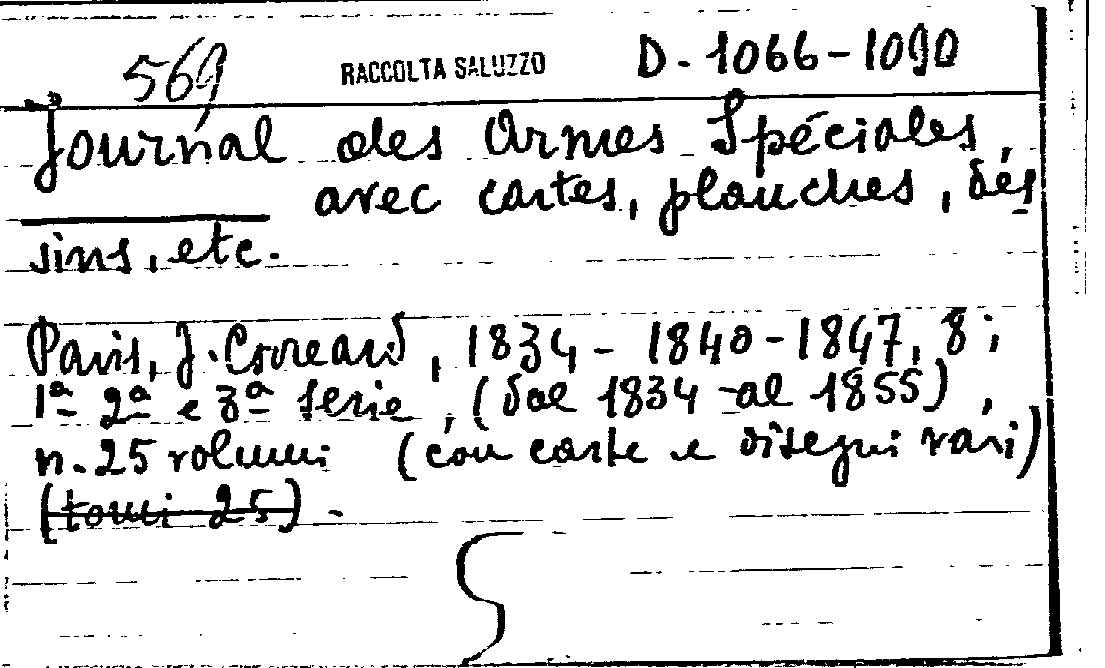 569 RACCOLTA SALUZZO D. 1066-1090
Journal des Armes Spéciales,
avec cartes, planches, des
sins, etc.
Paris, J. Correard, 1834 - 1840 - 1847, 8;
1ª 2ª e 3ª serie, (dal 1834 al 1855),
n. 25 volumi (con carte e disegni vari)
(tomi 25).